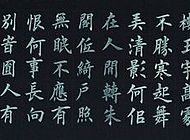 樓玉宇高處
不勝寒起舞
弄清影何似
在人間轉朱
閣低綺戶照
無眠不應有
恨何事長向
別旹圓人有